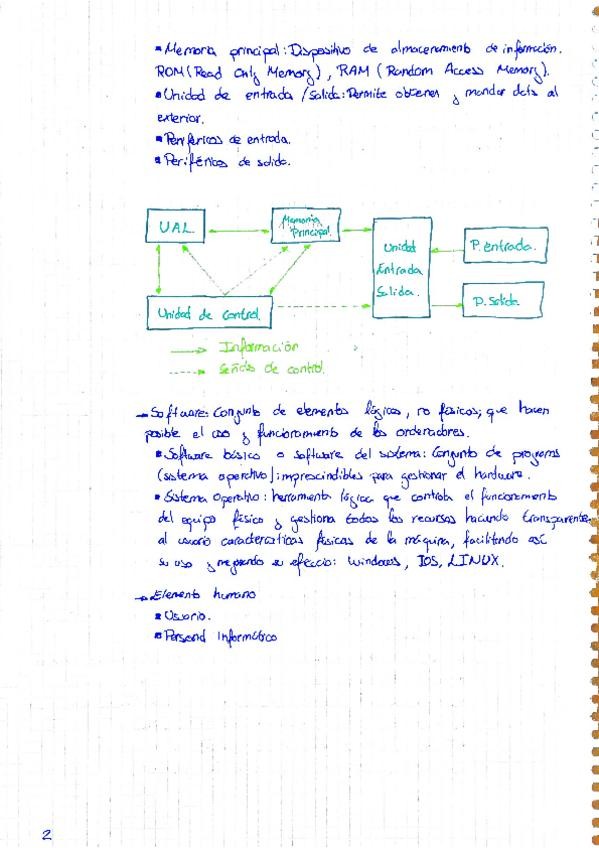 ▪ Memoria principal: Dispositivo de almacenamiento de información.
ROM (Read Only Memory), RAM (Random Access Memory).
▪ Unidad de entrada / Salida: Permite obtener y mandar dats al
exterior.
▪ Periféricos de entrada.
▪ Periféricos de salida.
UAL
Memoria
Principal.
Unidad
Entrada
Salida.
P. entrada.
P. Salida
Unidad de Control.
Información
Señales de control.
→ Software: Conjunto de elementos lógicos, no físicos, que hacen
posible el uso y funcionamiento de los ordenadores.
▪ Software básico o software del sistema: Conjunto de programas
(sistema operativo) imprescindibles para gestionar el hardware.
▪ Sistema Operativo: herramienta lógica que controla el funcionamiento
del equipo físico y gestiona todos los recursos haciendo transparente
al usuario características físicas de la máquina, facilitando así
su uso y mejorando su eficacia: Windows, IOS, LINUX.
→ Elemento humano
▪ Usuario.
▪ Personal Informático
2